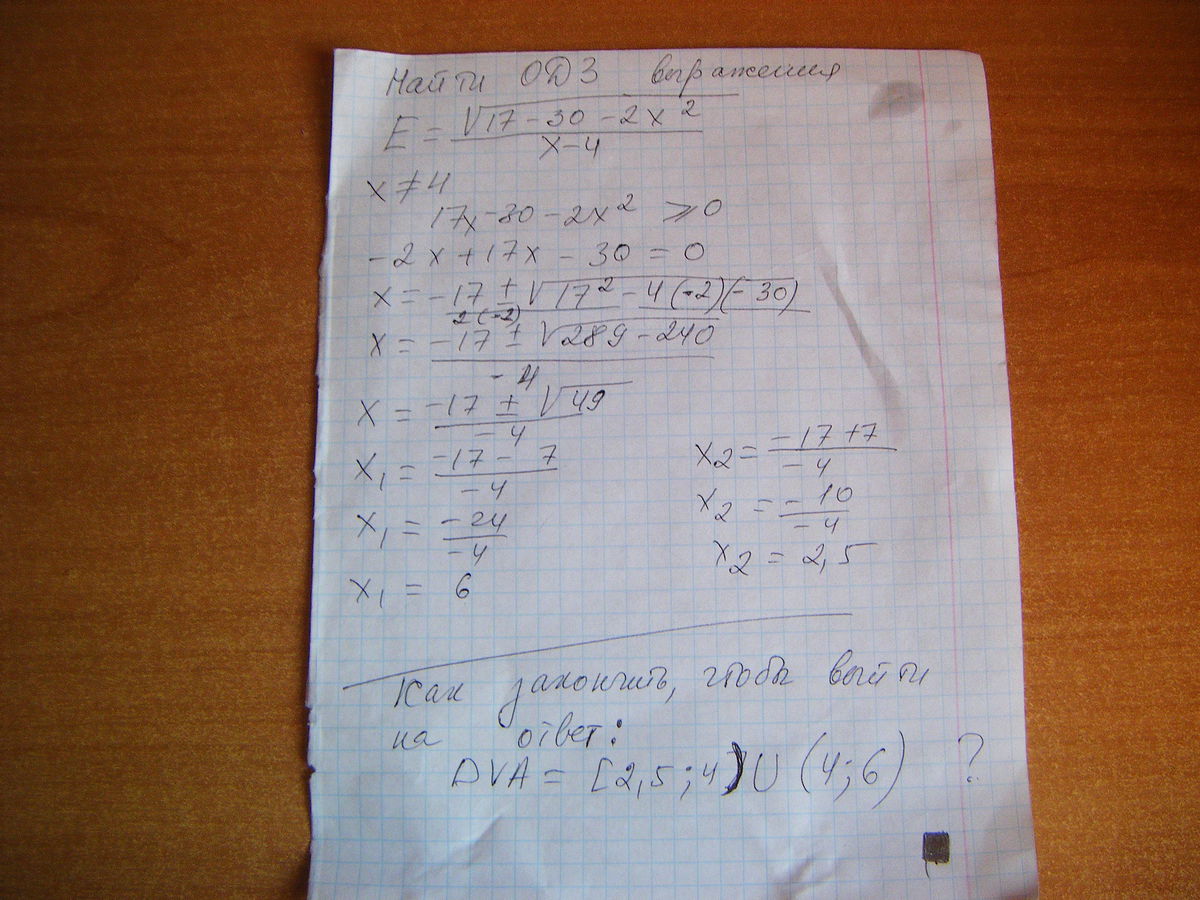 Найти ОДЗ выражения
E = √17 - 30 - 2x² / x - 4
x ≠ 4
17x - 30 - 2x² ⩾ 0
-2x + 17x - 30 = 0
x = -17 ± √17² - 4(-2)(-30) / 2(-2)
x = -17 ± √289 - 240 / -4
x = -17 ± √49 / -4
x₁ = -17 - 7 / -4
x₁ = -24 / -4
x₁ = 6
x₂ = -17 + 7 / -4
x₂ = -10 / -4
x₂ = 2,5
Как закончить, чтобы выйти
на ответ:
DVA = [2,5; 4) ∪ (4; 6) ?